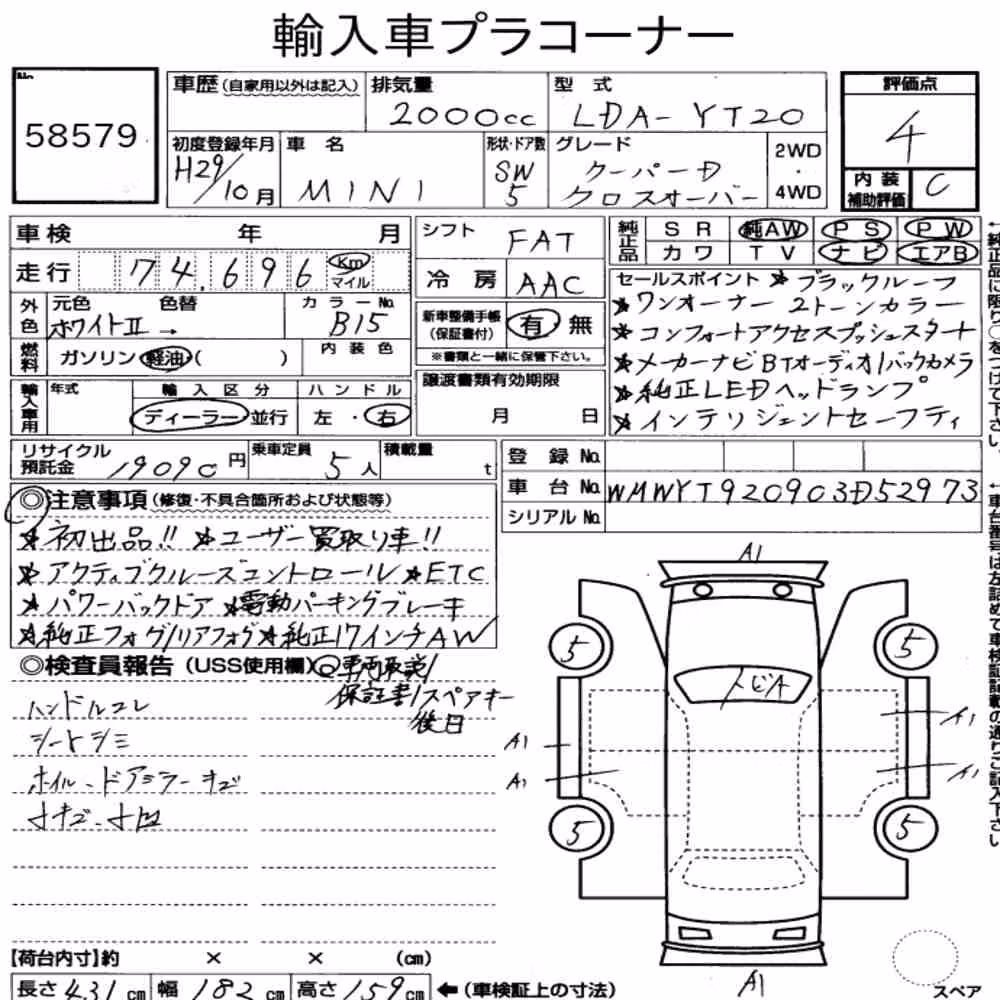 輸入車プラコーナー
No.
58579
車歴 (自家用以外は記入)
排気量
2000cc
型式
LDA-YT20
評価点
4
初度登録年月
H29/10月
車名
MINI
形状・ドア数
SW
5
グレード
クーパーD
クロスオーバー
2WD
・
4WD
内装
補助評価
C
車検 年 月
走行 74,696 Km マイル
シフト FAT
冷房 AAC
純正品
SR 純AW PS PW
カワ TV ナビ エアB
外色
元色 色替
ホワイトII →
カラーNo.
B15
燃料
ガソリン・軽油・( )
内装色
新車整備手帳
(保証書付)
有・無
※書類と一緒に保管下さい。
輸入車用
年式
輸入区分
ディーラー・並行
ハンドル
左・右
譲渡書類有効期限
月 日
セールスポイント ★ブラックルーフ
★ワンオーナー 2トーンカラー
★コンフォートアクセスプッシュスタート
★メーカーナビBTオーディオ/バックカメラ
★純正LEDヘッドランプ
★インテリジェントセーフティ
←純正品に限り○をつけて下さい。
リサイクル
預託金 19090円
乗車定員 5人
積載量 t
登録No.
車台No. WMWYT920903D52973
シリアルNo.
←車台番号は左詰めで車検証記載の通りご記入下さい
◎注意事項 (修復・不具合箇所および状態等)
★初出品!! ★ユーザー買取り車!!
★アクティブクルーズコントロール ★ETC
★パワーバックドア ★電動パーキングブレーキ
★純正フォグ/リアフォグ ★純正17インチAW
◎検査員報告 (USS使用欄)
車両取説/
保証書/スペアキー
後日
ハンドルコレ
シートシミ
ホイル、ドアミラーキズ
小キズ、小凹
A1
5
5
トビA
A1
A1
A1
A1
5
5
A1
スペア
【荷台内寸】約 × × (cm)
長さ 431 cm 幅 182 cm 高さ 159 cm ←(車検証上の寸法)